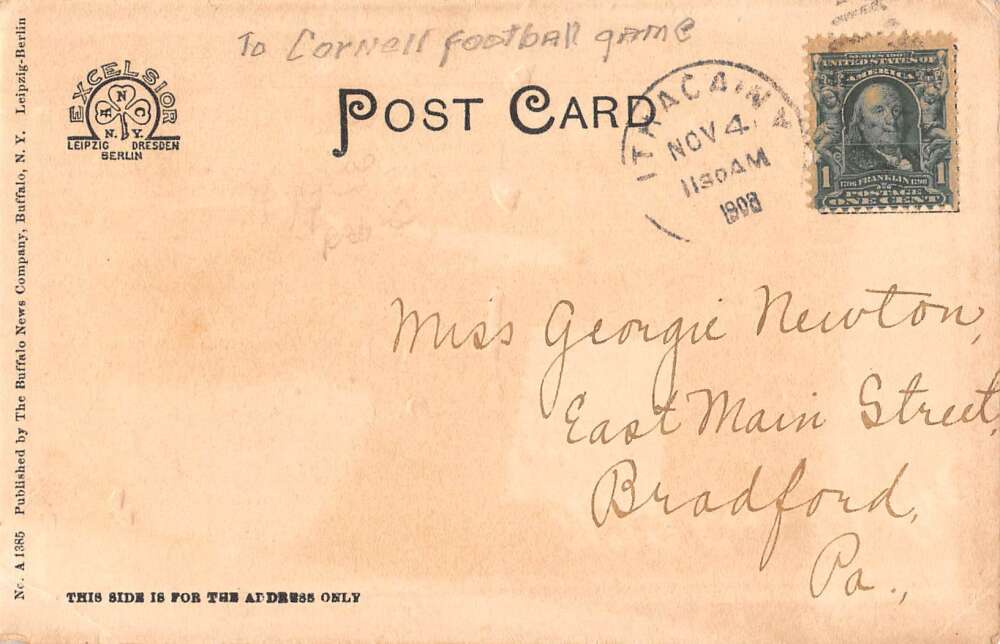 To Cornell football game
EXCELSIOR
N
N.Y.
LEIPZIG DRESDEN
BERLIN
POST CARD
ITHACA N.Y.
NOV 4
1130 AM
SERIES 1902
UNITED STATES OF
AMERICA
1706 FRANKLIN 1790
POSTAGE
1 ONE CENT 1
Miss Georgie Newton,
East Main Street,
Bradford,
Pa.,
THIS SIDE IS FOR THE ADDRESS ONLY
No. A 1385 Published by The Buffalo News Company, Buffalo, N. Y. Leipzig-Berlin